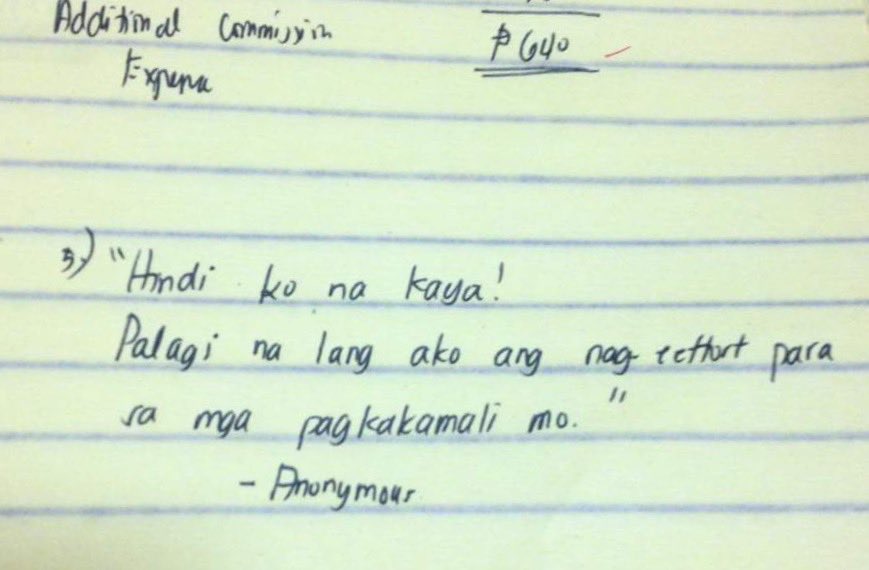 Additional Commission
₱ 640
Expense
3.) "Hindi ko na kaya!
Palagi na lang ako ang nag-eeffort para
sa mga pagkakamali mo."
- Anonymous